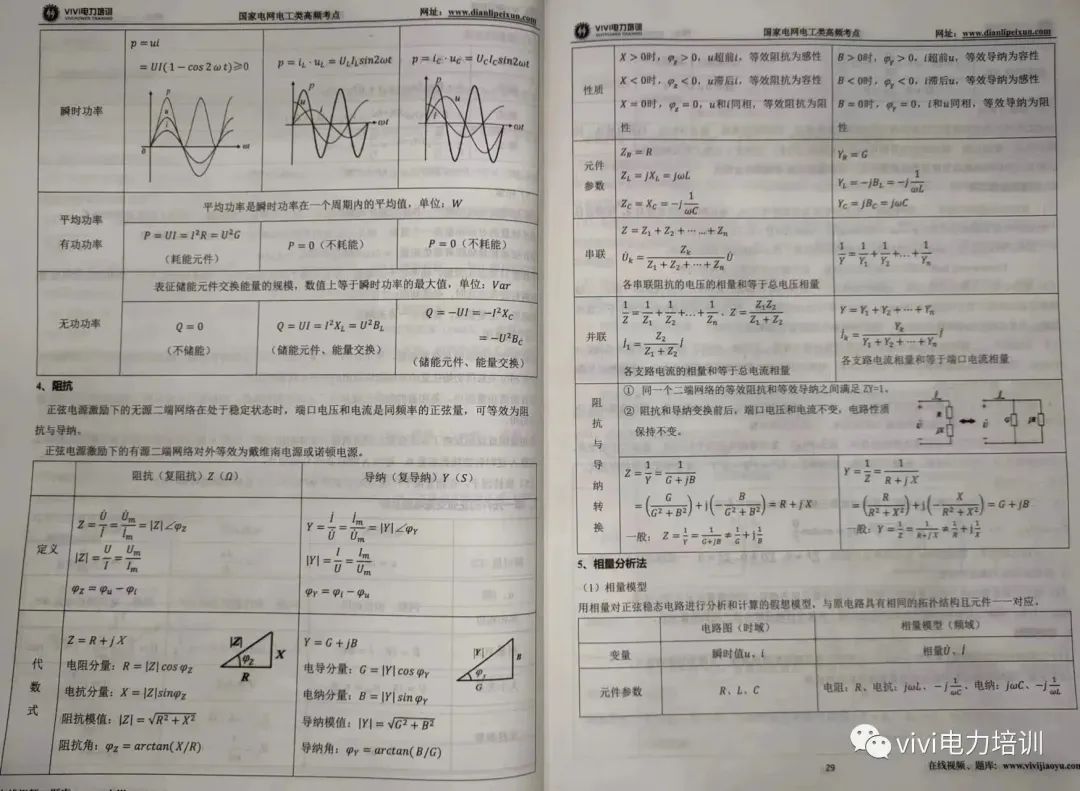 VIVI电力培训
国家电网电工类高频考点
网址：www.dianlipeixun.com
瞬时功率
p = ui
= UI(1 − cos2ωt)≥0
p = i_L · u_L = U_L I_L sin2ωt
p = i_C · u_C = U_C I_C sin2ωt
平均功率
有功功率
平均功率是瞬时功率在一个周期内的平均值，单位：W
P = UI = I²R = U²G
（耗能元件）
P = 0（不耗能）
P = 0（不耗能）
无功功率
表征储能元件交换能量的规模，数值上等于瞬时功率的最大值，单位：Var
Q = 0
（不储能）
Q = UI = I²X_L = U²B_L
（储能元件、能量交换）
Q = −UI = −I²X_C
= −U²B_C
（储能元件、能量交换）
4、阻抗
正弦电源激励下的无源二端网络在处于稳定状态时，端口电压和电流是同频率的正弦量，可等效为阻
抗与导纳。
正弦电源激励下的有源二端网络对外等效为戴维南电源或诺顿电源。
阻抗（复阻抗）Z（Ω）
导纳（复导纳）Y（S）
定义
Z = U̇/İ = U̇m/İm = |Z|∠φ_Z
|Z| = U/I = Um/Im
φ_Z = φ_u − φ_i
Y = İ/U̇ = İm/U̇m = |Y|∠φ_Y
|Y| = I/U = Im/Um
φ_Y = φ_i − φ_u
代数式
Z = R + jX
电阻分量：R = |Z| cos φ_Z
电抗分量：X = |Z|sinφ_Z
阻抗模值：|Z| = √(R² + X²)
阻抗角：φ_Z = arctan(X/R)
|Z| φ_Z X
R
Y = G + jB
电导分量：G = |Y| cos φ_Y
电纳分量：B = |Y| sin φ_Y
导纳模值：|Y| = √(G² + B²)
导纳角：φ_Y = arctan(B/G)
|Y| φ_Y B
G
VIVI电力培训
国家电网电工类高频考点
网址：www.dianlipeixun.com
性质
X > 0时，φ_Z > 0，u超前i，等效阻抗为感性
X < 0时，φ_Z < 0，u滞后i，等效阻抗为容性
X = 0时，φ_Z = 0，u和i同相，等效阻抗为阻
性
B > 0时，φ_Y > 0，i超前u，等效导纳为容性
B < 0时，φ_Y < 0，i滞后u，等效导纳为感性
B = 0时，φ_Y = 0，i和u同相，等效导纳为阻
性
元件
参数
Z_R = R
Z_L = jX_L = jωL
Z_C = X_C = −j 1/ωC
Y_R = G
Y_L = −jB_L = −j 1/ωL
Y_C = jB_C = jωC
串联
Z = Z₁ + Z₂ + ⋯ … + Zn
U̇k = Zk/(Z₁ + Z₂ + ⋯ + Zn) U̇
各串联阻抗的电压的相量和等于总电压相量
1/Y = 1/Y₁ + 1/Y₂ + … + 1/Yn
并联
1/Z = 1/Z₁ + 1/Z₂ + … + 1/Zn、Z = Z₁Z₂/(Z₁ + Z₂)
İ₁ = Z₂/(Z₁ + Z₂) İ
各支路电流的相量和等于总电流相量
Y = Y₁ + Y₂ + ⋯ + Yn
İk = Yk/(Y₁ + Y₂ + ⋯ + Yn) İ
各支路电流相量和等于端口电流相量
阻抗与导纳转换
① 同一个二端网络的等效阻抗和等效导纳之间满足 ZY=1。
② 阻抗和导纳变换前后，端口电压和电流不变，电路性质
保持不变。
Z = 1/Y = 1/(G + jB)
= (G/(G² + B²)) + j(−B/(G² + B²)) = R + jX
一般：Z = 1/Y = 1/(G+jB) ≠ 1/G + j 1/B
Y = 1/Z = 1/(R + jX)
= (R/(R² + X²)) + j(−X/(R² + X²)) = G + jB
一般：Y = 1/Z = 1/(R+jX) ≠ 1/R + j 1/X
5、相量分析法
（1）相量模型
用相量对正弦稳态电路进行分析和计算的假想模型，与原电路具有相同的拓扑结构且元件一一对应。
电路图（时域）
相量模型（频域）
变量
瞬时值u、i
相量U̇、İ
元件参数
R、L、C
电阻：R、电抗：jωL、−j 1/ωC、电纳：jωC、−j 1/ωL
vivi电力培训
29
在线视频、题库：www.vivijiaoyu.com